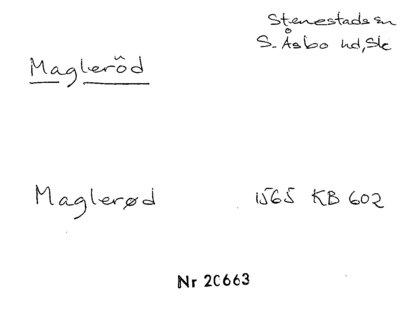 Stenestads sn
S. Åsbo hd, Sk
Magleröd
Maglerød 1565 KB 602
Nr 20663